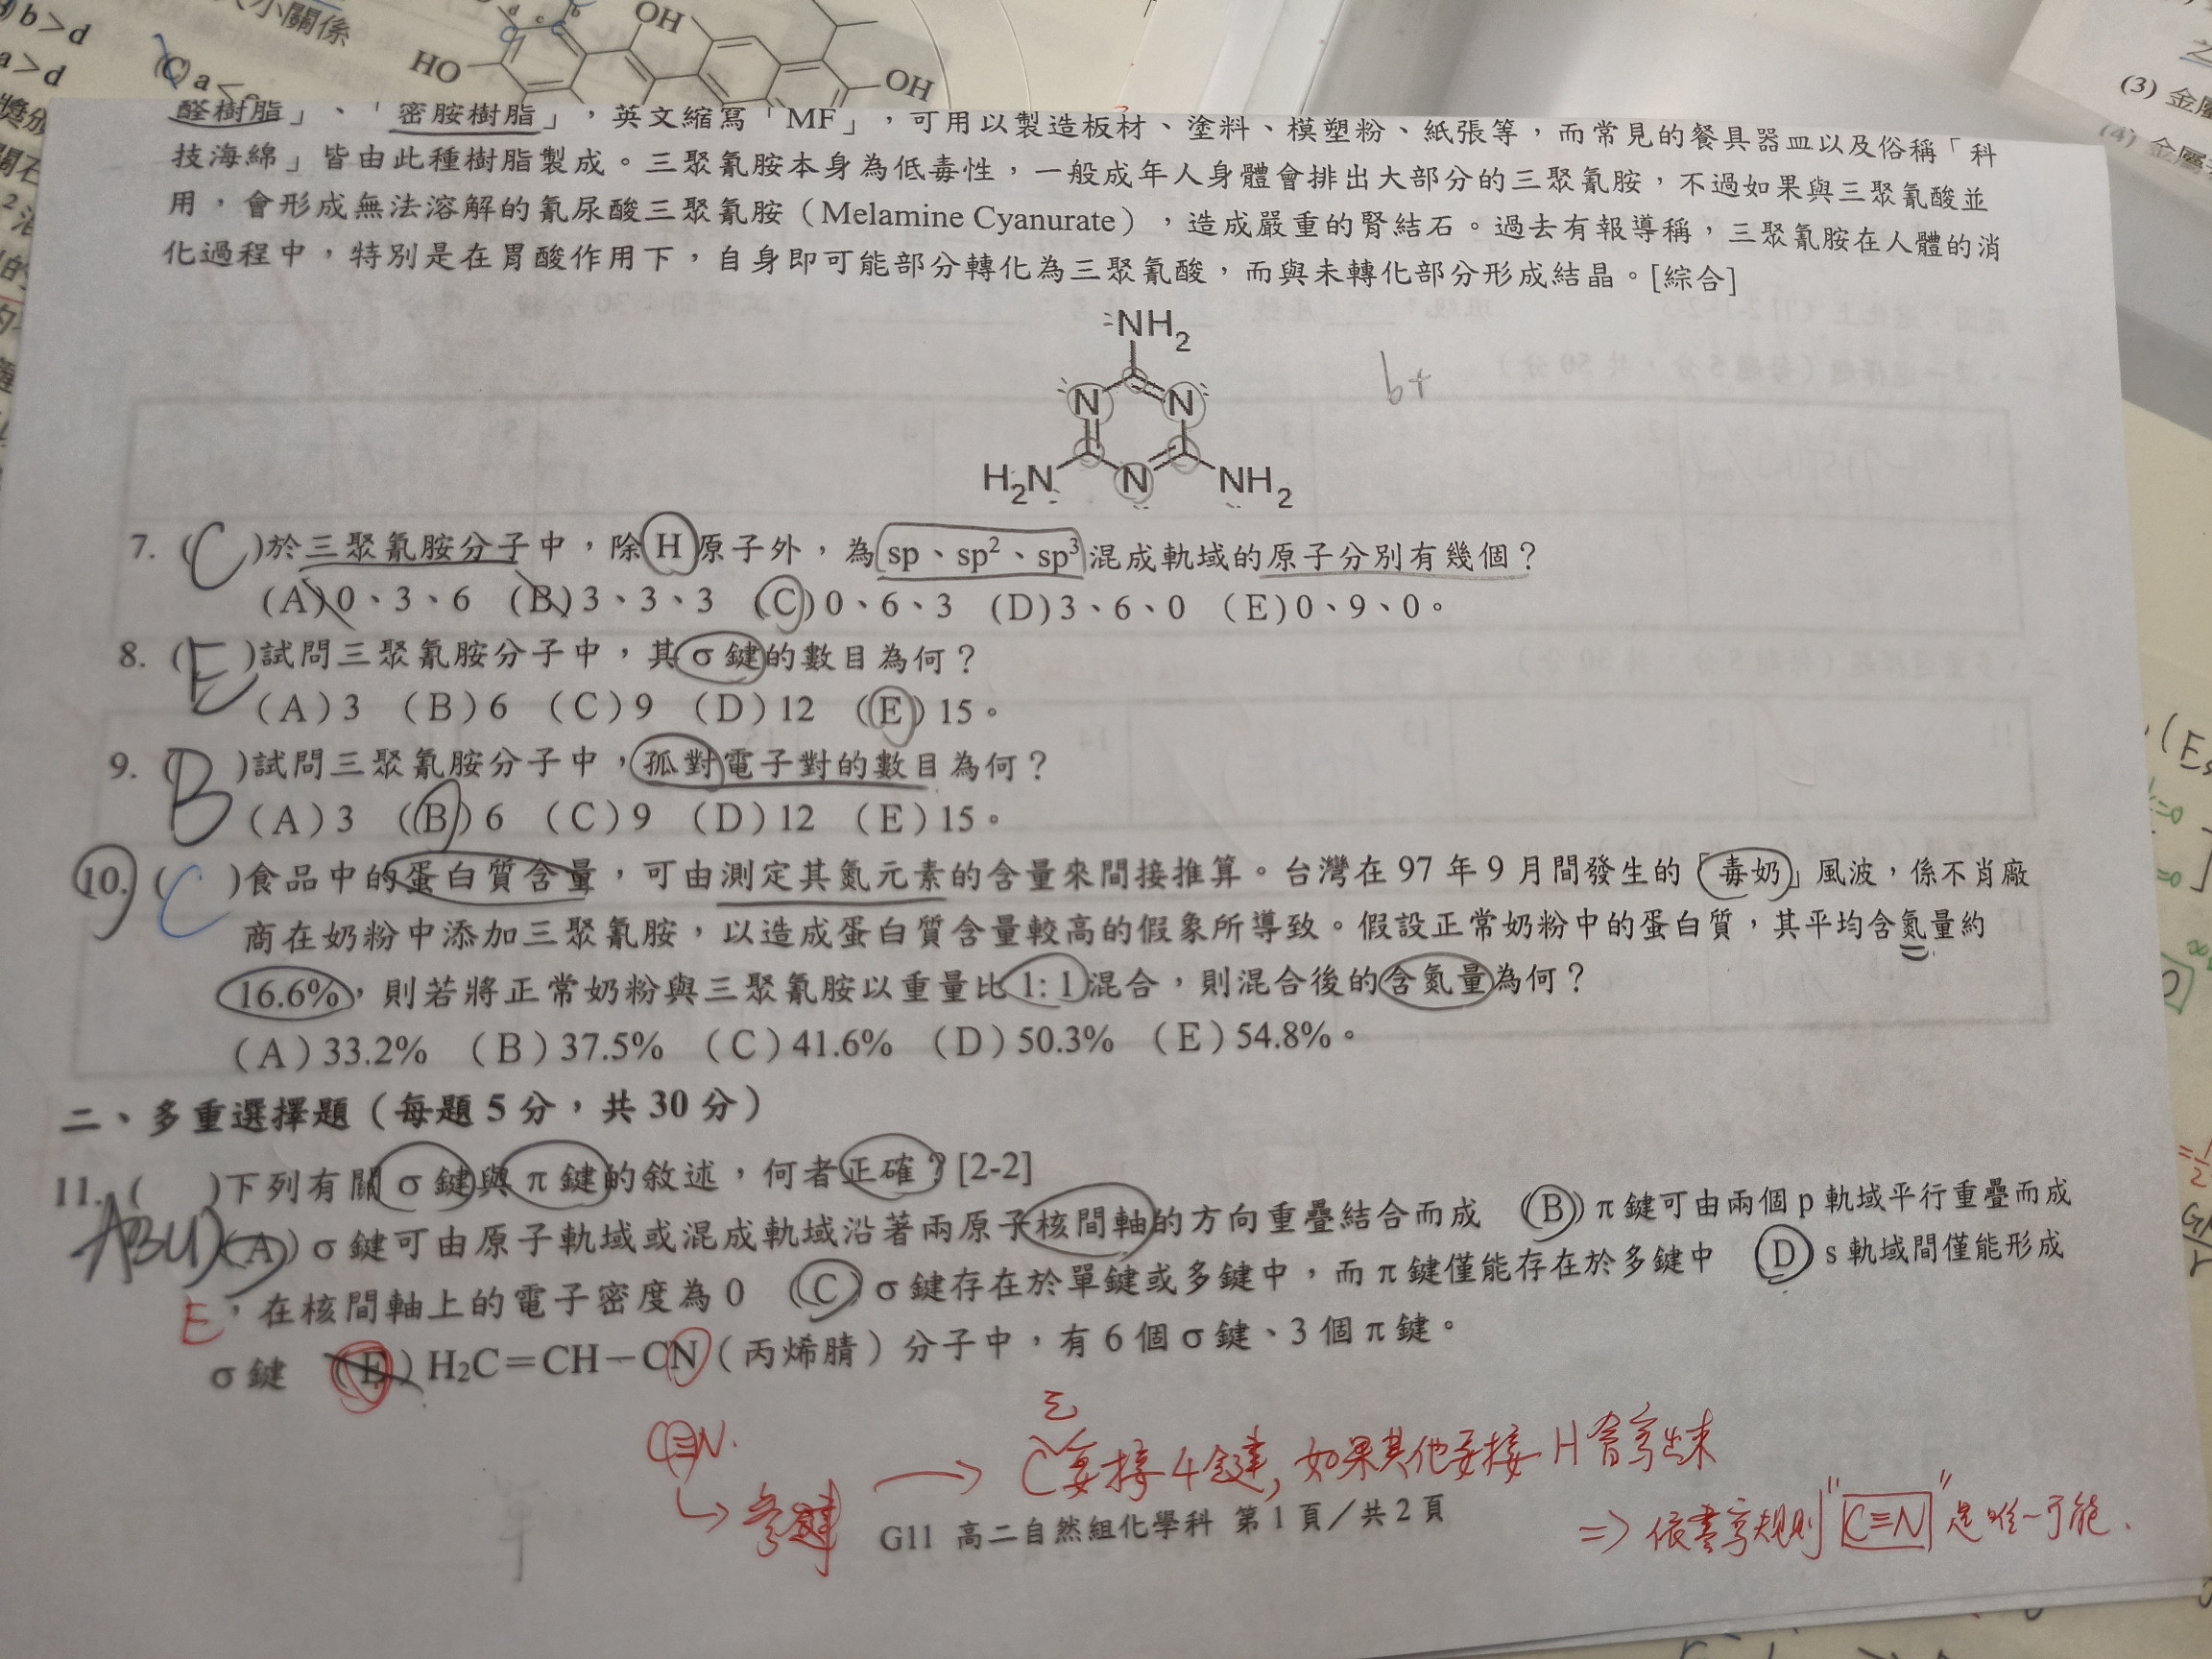 b>d
大小關係
a>d
(C) a
HO
OH
OH
(3) 金屬
(4) 金屬
醛樹脂」、「密胺樹脂」，英文縮寫「MF」，可用以製造板材、塗料、模塑粉、紙張等，而常見的餐具器皿以及俗稱「科
技海綿」皆由此種樹脂製成。三聚氰胺本身為低毒性，一般成年人身體會排出大部分的三聚氰胺，不過如果與三聚氰酸並
用，會形成無法溶解的氰尿酸三聚氰胺（Melamine Cyanurate），造成嚴重的腎結石。過去有報導稱，三聚氰胺在人體的消
化過程中，特別是在胃酸作用下，自身即可能部分轉化為三聚氰酸，而與未轉化部分形成結晶。[綜合]
NH2
N N
H2N N NH2
7. ( C )於三聚氰胺分子中，除 H 原子外，為 sp、sp²、sp³ 混成軌域的原子分別有幾個？
(A)0、3、6 (B)3、3、3 (C)0、6、3 (D)3、6、0 (E)0、9、0。
8. ( E )試問三聚氰胺分子中，其 σ 鍵的數目為何？
(A)3 (B)6 (C)9 (D)12 (E)15。
9. ( B )試問三聚氰胺分子中，孤對電子對的數目為何？
(A)3 (B)6 (C)9 (D)12 (E)15。
10. ( C )食品中的蛋白質含量，可由測定其氮元素的含量來間接推算。台灣在 97 年 9 月間發生的「毒奶」風波，係不肖廠
商在奶粉中添加三聚氰胺，以造成蛋白質含量較高的假象所導致。假設正常奶粉中的蛋白質，其平均含氮量約
16.6%，則若將正常奶粉與三聚氰胺以重量比 1:1 混合，則混合後的含氮量為何？
(A)33.2% (B)37.5% (C)41.6% (D)50.3% (E)54.8%。
二、多重選擇題（每題 5 分，共 30 分）
11. ( )下列有關 σ 鍵與 π 鍵的敘述，何者正確？[2-2]
(A) σ 鍵可由原子軌域或混成軌域沿著兩原子核間軸的方向重疊結合而成 (B) π 鍵可由兩個 p 軌域平行重疊而成
，在核間軸上的電子密度為 0 (C) σ 鍵存在於單鍵或多鍵中，而 π 鍵僅能存在於多鍵中 (D) s 軌域間僅能形成
E
σ 鍵 (E) H2C＝CH－CN（丙烯腈）分子中，有 6 個 σ 鍵、3 個 π 鍵。
C≡N.
↳ 參鍵 → C要接4鍵, 如果其他要接H會寫出來
⇒ 依書寫規則 "C≡N" 是唯一可能.
G11 高二自然組化學科 第 1 頁／共 2 頁